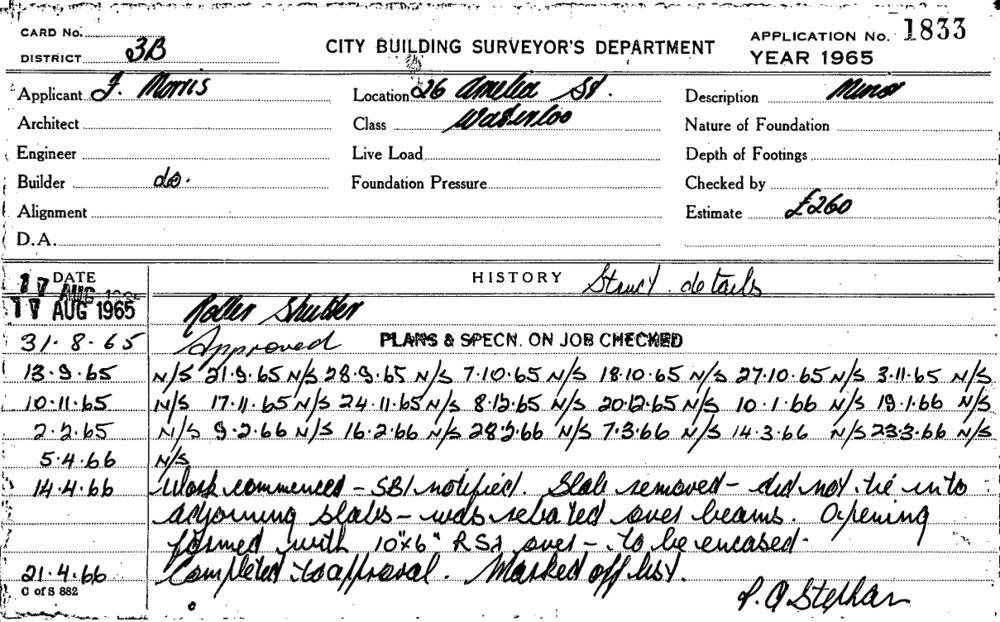 CARD No.
DISTRICT 3B
CITY BUILDING SURVEYOR'S DEPARTMENT
APPLICATION No. 1833
YEAR 1965
Applicant J. Morris Location 26 Amelia St. Description Minor
Architect Class Waterloo Nature of Foundation
Engineer Live Load Depth of Footings
Builder do. Foundation Pressure Checked by
Alignment Estimate £260
D.A.
DATE HISTORY Struct. details
17 AUG
17 AUG 1965 Roller Shutter
31.8.65 Approved PLANS & SPECN. ON JOB CHECKED
13.9.65 N/S 21.9.65 N/S 28.9.65 N/S 7.10.65 N/S 18.10.65 N/S 27.10.65 N/S 3.11.65 N/S
10.11.65 N/S 17.11.65 N/S 24.11.65 N/S 8.12.65 N/S 20.12.65 N/S 10.1.66 N/S 19.1.66 N/S
2.2.65 N/S 9.2.66 N/S 16.2.66 N/S 28.2.66 N/S 7.3.66 N/S 14.3.66 N/S 23.3.66 N/S
5.4.66 N/S
14.4.66 Work commenced - SBI notified. Slab removed - did not tie into
adjoining slabs - was rebated over beams. Opening
formed with 10"x6" RSJ over - to be encased.
21.4.66 Completed to approval. Marked off list.
C of S 882